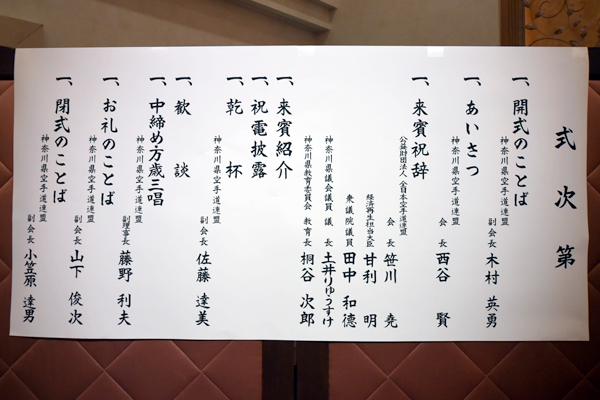 式次第
一、開式のことば
神奈川県空手道連盟 副会長 木村 英勇
一、あいさつ
神奈川県空手道連盟 会長 西谷 賢
一、来賓祝辞
公益財団法人 全日本空手道連盟 会長 笹川 堯
経済再生担当大臣 甘利 明
衆議院議員 田中 和德
神奈川県議会議員 議長 土井りゅうすけ
神奈川県教育委員会 教育長 桐谷 次郎
一、来賓紹介
一、祝電披露
一、乾杯
神奈川県空手道連盟 副会長 佐藤 達美
一、歓談
一、中締め万歳三唱
神奈川県空手道連盟 副理事長 藤野 利夫
一、お礼のことば
神奈川県空手道連盟 副会長 山下 俊次
一、閉式のことば
神奈川県空手道連盟 副会長 小笠原 達男